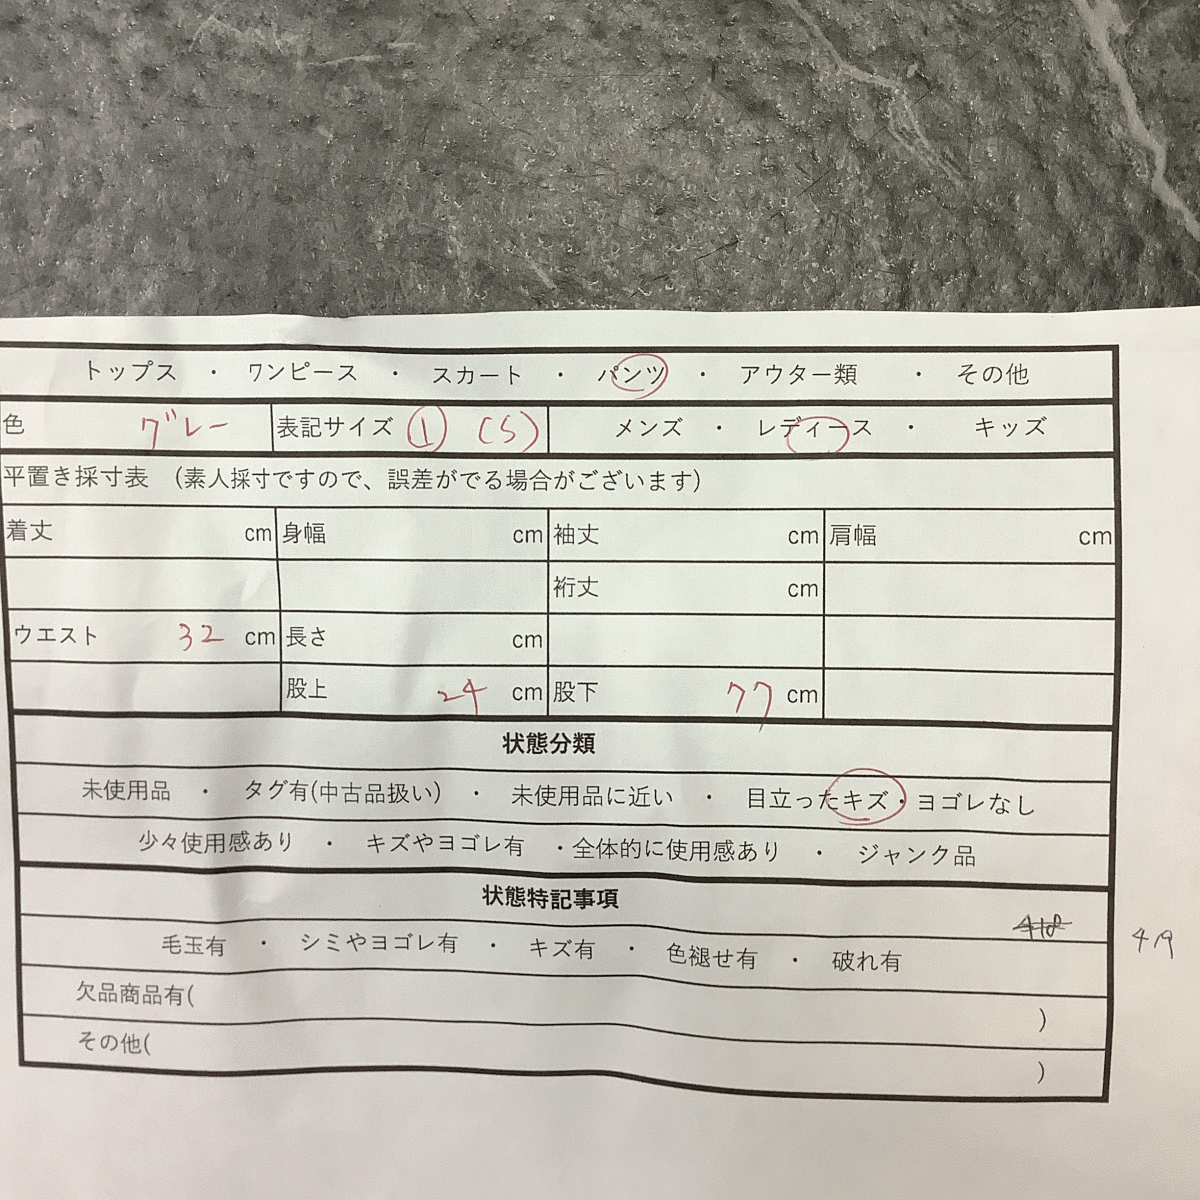 トップス ・ ワンピース ・ スカート ・ パンツ ・ アウター類 ・ その他
色 グレー 表記サイズ ① (S) メンズ ・ レディース ・ キッズ
平置き採寸表 (素人採寸ですので、誤差がでる場合がございます)
着丈 cm 身幅 cm 袖丈 cm 肩幅 cm
裄丈 cm
ウエスト 32 cm 長さ cm
股上 24 cm 股下 77 cm
状態分類
未使用品 ・ タグ有(中古品扱い) ・ 未使用品に近い ・ 目立ったキズ・ヨゴレなし
少々使用感あり ・ キズやヨゴレ有 ・全体的に使用感あり ・ ジャンク品
状態特記事項
毛玉有 ・ シミやヨゴレ有 ・ キズ有 ・ 色褪せ有 ・ 破れ有
419
欠品商品有( )
その他( )